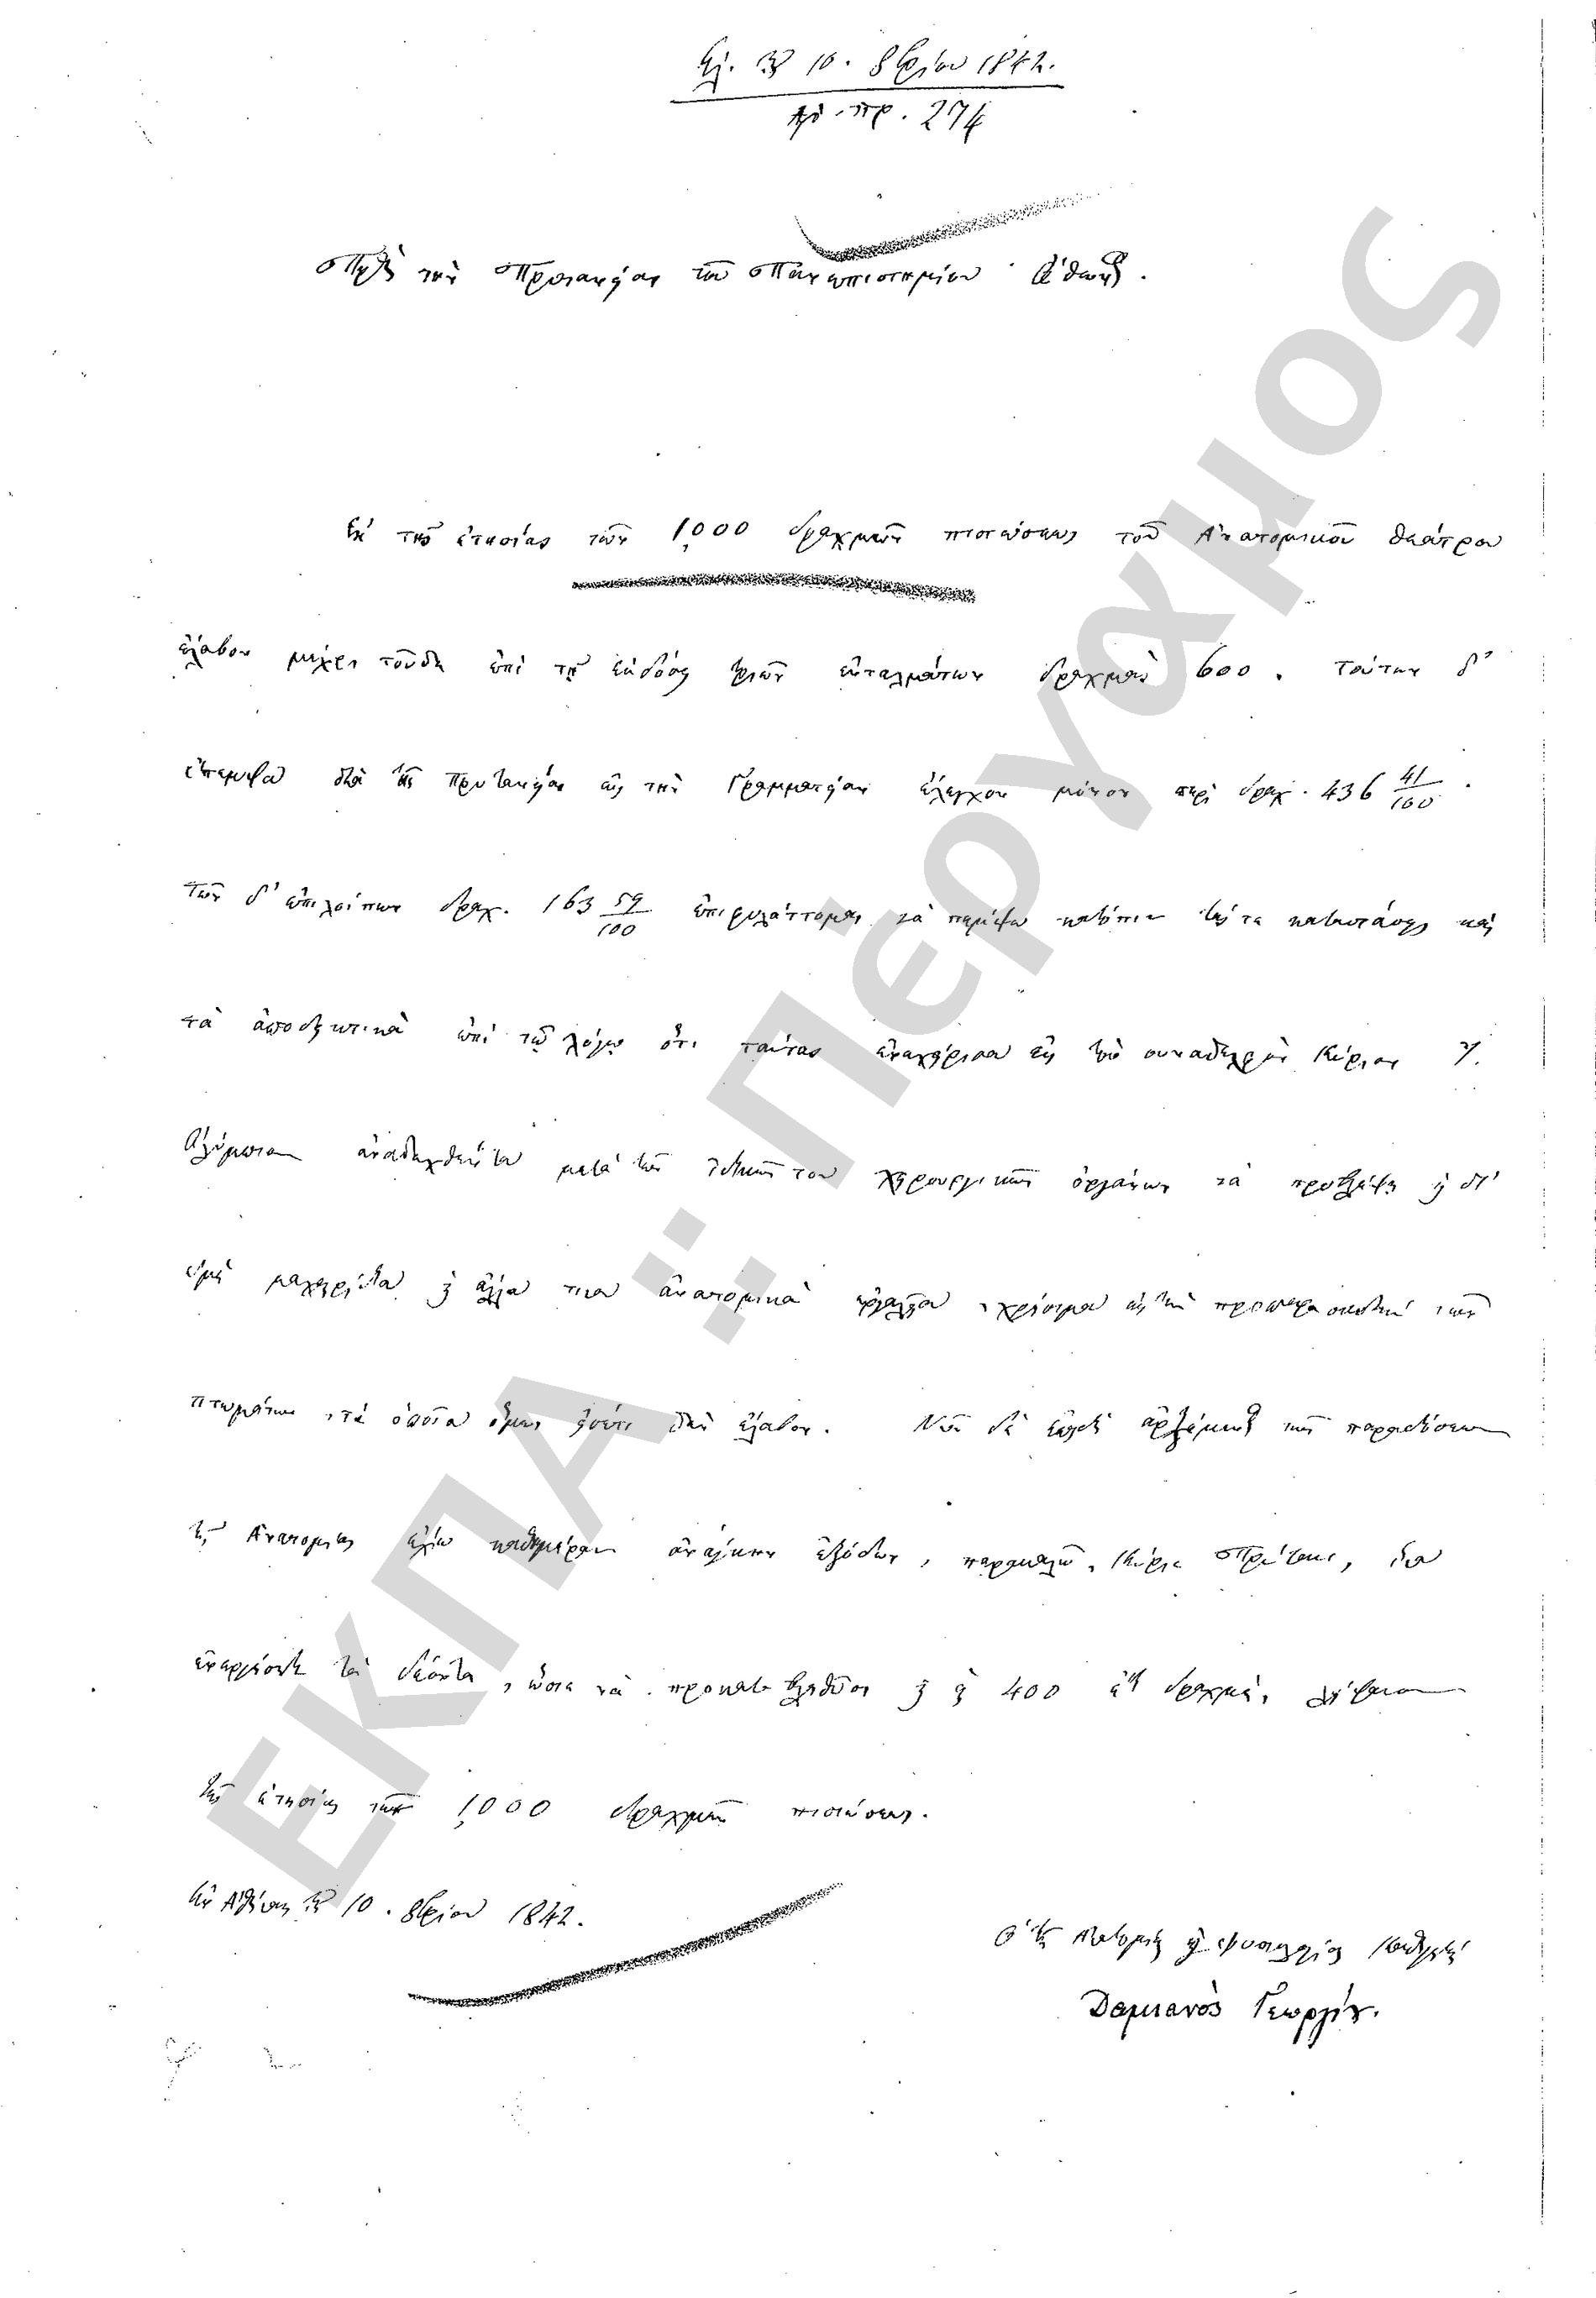 τῇ 10. 8βρίου 1842.
Ἀρ. πρ. 274
Πρὸς τὴν Πρυτανείαν τοῦ Πανεπιστημίου Ὄθωνος.
Ἐκ τῆς ἐτησίας τῶν 1,000 δραχμῶν πιστώσεως τοῦ Ἀνατομικοῦ θεάτρου
ἔλαβον μέχρι τοῦδε ἐπὶ τῇ ἐκδόσει τριῶν ἐνταλμάτων δραχμὰς 600. τούτων δ'
ἔπεμψα διὰ τῆς Πρυτανείας εἰς τὴν Γραμματείαν ἔλεγχον μόνον περὶ δραχ. 436 41/100.
τῶν δ' ἐπιλοίπων δραχ. 163 59/100 ἐπιφυλάττομαι νὰ πέμψω κατόπιν τάς τε καταστάσεις καὶ
τὰ ἀποδεικτικὰ ἐπὶ τῷ λόγῳ ὅτι ταύτας ἐνεχείρισα εἰς τὸν συνάδελφον Κύριον
Ὀλύμπιον ἀναδεχθέντα μετὰ τῶν ἰδικῶν του χειρουργικῶν ὀργάνων νὰ προβλέψῃ καὶ δι'
ἐμὲ μαχαιρίδια καὶ ἄλλα τινα ἀνατομικὰ ἐργαλεῖα χρήσιμα εἰς τὴν προπαρασκευὴν τῶν
πτωμάτων, τὰ ὁποῖα ὅμως εἰσέτι δὲν ἔλαβον. Νῦν δὲ ἐπειδὴ ἀρξάμενος τῶν παραδόσεων
τῆς Ἀνατομίας ἔχω καθημέραν ἀνάγκην ἐξόδων, παρακαλῶ, Κύριε Πρύτανι, ἵνα
ἐνεργήσητε τὰ δέοντα, ὥστε νὰ προκαταβληθῶσι καὶ αἱ 400 ἔτι δραχμαὶ, λείψανον
τῆς ἐτησίας τῶν 1,000 δραχμῶν πιστώσεως.
Ἐν Ἀθήναις τῇ 10. 8βρίου 1842.
Ὁ τῆς Ἀνατομίας καὶ Φυσιολογίας Καθηγητὴς
Δαμιανὸς Γεωργίου.
ΕΚΠΑ :: Πέργαμος